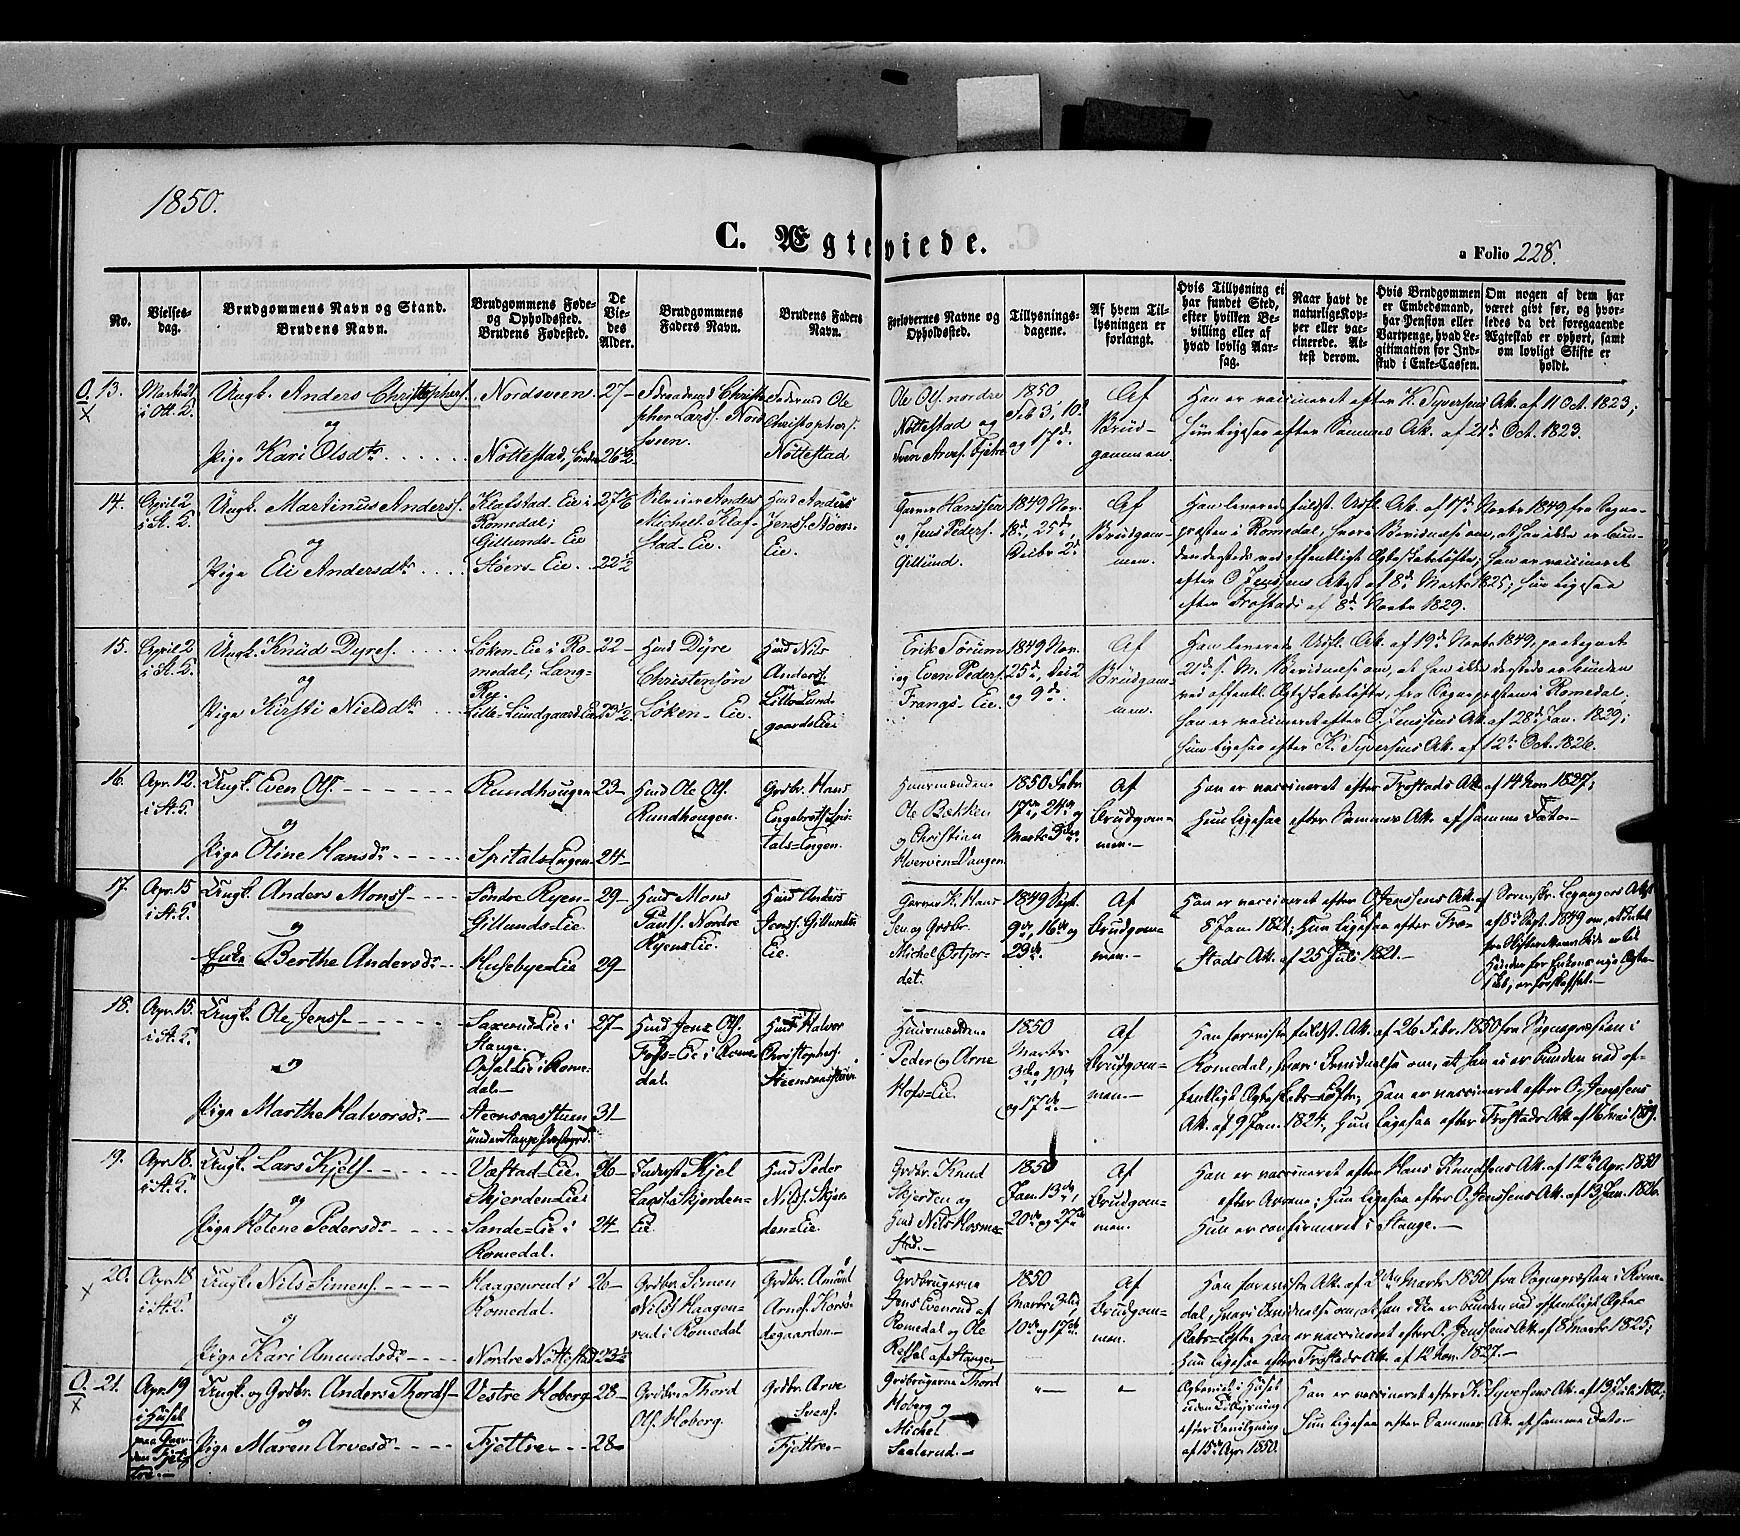 1850.
C. Ægteviede.
a Folio 228.
No.
Vielses-
dag.
Brudgommens Navn og Stand.
Brudens Navn.
Brudgommens Føde-
og Opholdsted.
Brudens Fødested.
De
Vie-
des
Alder.
Brudgommens
Faders Navn.
Brudens Faders
Navn.
Forlovernes Navne og
Opholdssted.
Tillysnings-
dagene.
Af hvem Til-
lysningen er
forlangt.
Hvis Tillysning ei
har fundet Sted,
efter hvilken Be-
villing eller af
hvad lovlig Aar-
sag.
Naar havt de
naturlige Kop-
per eller vac-
cinerede. At-
test derom.
Hvis Brudgommen
er Embedsmand,
har Pension eller
Vartpenge, hvad Le-
gitimation for Ind-
skud i Enke-Cassen.
Om nogen af dem har
været givt før, og hvor-
ledes da det foregaaende
Ægteskab er ophørt, samt
om lovligt Skifte er
holdt.
O. 13.
X
Marts 21
Ungk. Anders Christophers.
og
Pige Kari Olsdtr
Nordsveen
Nöttestad, söndre
27
26½
pher Lars. Nord
sveen.
Ole
Christophers.
Nöttestad
Ole Ols. nordre
Nöttestad og
Sven Arves. Fjetre
1850
Feb 3, 10.
og 17d.
Af
Brud-
gommen.
Han er vaccineret efter K. Syversens Att. af 11 Oct. 1823;
Hun ligesaa efter Sammes Att. af 21d Oct. 1823.
14.
April 2
Ungk. Martinus Anders.
og
Pige Eli Andersdtr
Klafstad-Eie i
Romedal;
Gillunds-Eie
Stöers-Eie.
27½
22½
Anders
Michels. Klaf-
stad-Eie.
Hmd Anders
Jens. Stöers-
Eie.
Garver Hanssen
og Jens Peders.
Gillund.
1849 Nov.
18d, 25d,
Decbr 2d
Af
Brudgom-
men.
Han leverede fuldst. Udsk. Att. af 17d Novbr 1849 fra Sogne-
præsten i Romedal, hvori Bevidnes om, at han ikke er bun-
den dersteds ved offentligt Ægteskabsløfte; han er vaccineret
efter O. Jenssens Attest af 8d Marts 1825; hun ligesaa
efter Frostads af 8d Novbr 1829.
15.
April 2
Ungk. Knud Dyres.
og
Pige Kirsti Nielsdtr
Löken-Eie i Ro-
medal; Lang-
Lille-Lundgaards Eie
22
23½
Hmd Dyre
Christensön
Löken-Eie.
Hmd Nils
Anders.
Lille Lund-
gaards Eie
Erik Sörum
og Even Peders.
Frangs-Eie.
1849 Nov.
25d, Dec 2
og 9d.
Af
Brudgom-
men.
Han leverede Udsk. Att. af 19d Novbr 1849, paategnet
21d s. M. Bevidnelse om, at han ikke dersteds er bunden
ved offentl. Ægteskabsløfte, fra Sognepræsten i Romedal;
han er vaccineret efter O. Jenssens Att. af 28d Jan. 1829;
hun ligesaa efter K. Syversens Att. af 12te Oct. 1826.
16.
Apr. 12.
Ungk. Even Ols.
og
Pige Oline Hansdr
Rundhougen
Spitals-Engen
23
24
Hmd Ole Ols.
Rundhougen.
Grdbr. Hans
Engebrets. Spi-
tals-Engen.
Huusmændene
Ole Bækken
og Christian
Hverven-Vangen
1850 Febr
17de, 24de og
Marts 3die.
Af
Brudgom-
men.
Han er vaccineret efter Frostads Att. af 14 Nov 1827;
Hun ligesaa efter Sammes Att. af samme Dato.
17.
Apr. 15
Ungk. Anders Mons.
og
Enke Berthe Andersdr
Söndre Ryen-
Gillunds-Eie
Husebye-Eie
29
29
Hmd Mons
Pauls. Nordre
Ryens Eie.
Hmd Anders
Jens. Gillunds
Eie.
Garver K. Hans
sen og Grdbr.
Michel Östjor-
det.
1849 Sept.
9de, 16de og
23de.
Af
Brudgom-
men.
Han er vaccineret efter O. Jenssens Att. af
8 Jan. 1821; Hun ligesaa efter Fro-
stads Att. af 25 Juli 1821.
Sorenskr. Lesangers Attest
af 8de Sept. 1849 om, at Intet
fra Skifterettens Side er til
Hinder for Enkens nye Ægte-
skab; er forskaffet.
18.
Apr. 15.
Ungk. Ole Jens.
og
Pige Marthe Halvorsdr
Saxerud Eie i
Stange.
Opsal Eie i Rome-
dal
Steensaasstuen
under Stange Præstegrd.
27
31
Hmd Jens Ols.
Fosse-Eie i Rome
dal.
Hmd Halvor
Christophers.
Steensaasstuen
Huusmændene
Peder og Arne
Hofs-Eie.
1850
Marts
3die, 10de
og 17de.
Af
Brudgom-
men.
Han foreviste fuldst. Att. af 26 Febr. 1850 fra Sognepræsten i
Romedal, hvori Bevidnelse om, at han ei er bunden ved of-
fentligt Ægteskabs-Løfte; Han er vaccineret efter O. Jenssens
Att. af 9 Jan. 1824; Hun ligesaa efter Frostads Att. af 16 Mai 1819.
19.
Apr 18.
Ungk. Lars Kjels.
og
Pige Helene Pedersdr
Væstad-Eie.
Skjerden-Eie
Sande-Eie i
Romedal.
26
24
Inderst Kjel
Lars. Skjerden-
Eie.
Hmd Peder
Nils. Skjer-
den-Eie.
Grdbr. Knud
Skjerden og
Hmd Nils Hosme-
stad.
1850
Jan 13de,
20de og 27de
Af
Brudgom-
men.
Han er vaccineret efter Hans Knudsens Att. af 12te Apr. 1830
Hun ligesaa efter O. Jenssens Att. af 13 Jan. 1826.
Hun er confirmeret i Stange.
20.
X
Apr 18
Ungk. Nils Simens.
og
Pige Kari Amundsdr
Haagenrud i
Romedal.
Nordre Nöttestad
26
23½
Grdbr Simen
Nils. Haagen-
rud i Romedal
Grdbr. Amund
Arnes. Korsö-
degaarden
Grdbrugerne
Jens Evenrud af
Romedal og Ole
af Stange
1850
Marts 3die
10de og 17de.
Af
Brudgom-
men.
Han foreviste Att. af 2den Marts 1850 fra Sognepræsten i Rome-
dal, hvori Bevidnelse om, at han ikke er bunden ved offentligt Ægte-
skabs-Løfte. Han er vaccineret efter O. Jenssens Att. af 8 Marts 1825;
Hun ligesaa efter Frostads Att. af 12 Nov. 1827.
O. 21.
X
Apr. 19
i Huset
paa Gaar-
den Fjet-
tre.
Ungk. og Grdbr. Anders Thords.
og
Pige Maren Arvesdr
Vestre Hoberg
Fjettre
28
28
Grdbr. Thord
Ols. Hoberg.
Grdbr. Arve
Svens.
Fjettre
Grdbrugerne Thord
Hoberg og
Michel
Saalerud.
Ægteviet i Huset
uden Tillysning
efter Bevilgning
af 15de Apr. 1850.
Han er vaccineret efter K. Syversens Att. af 13 Juli 1822;
Hun ligesaa efter Sammes Att. af samme Dato